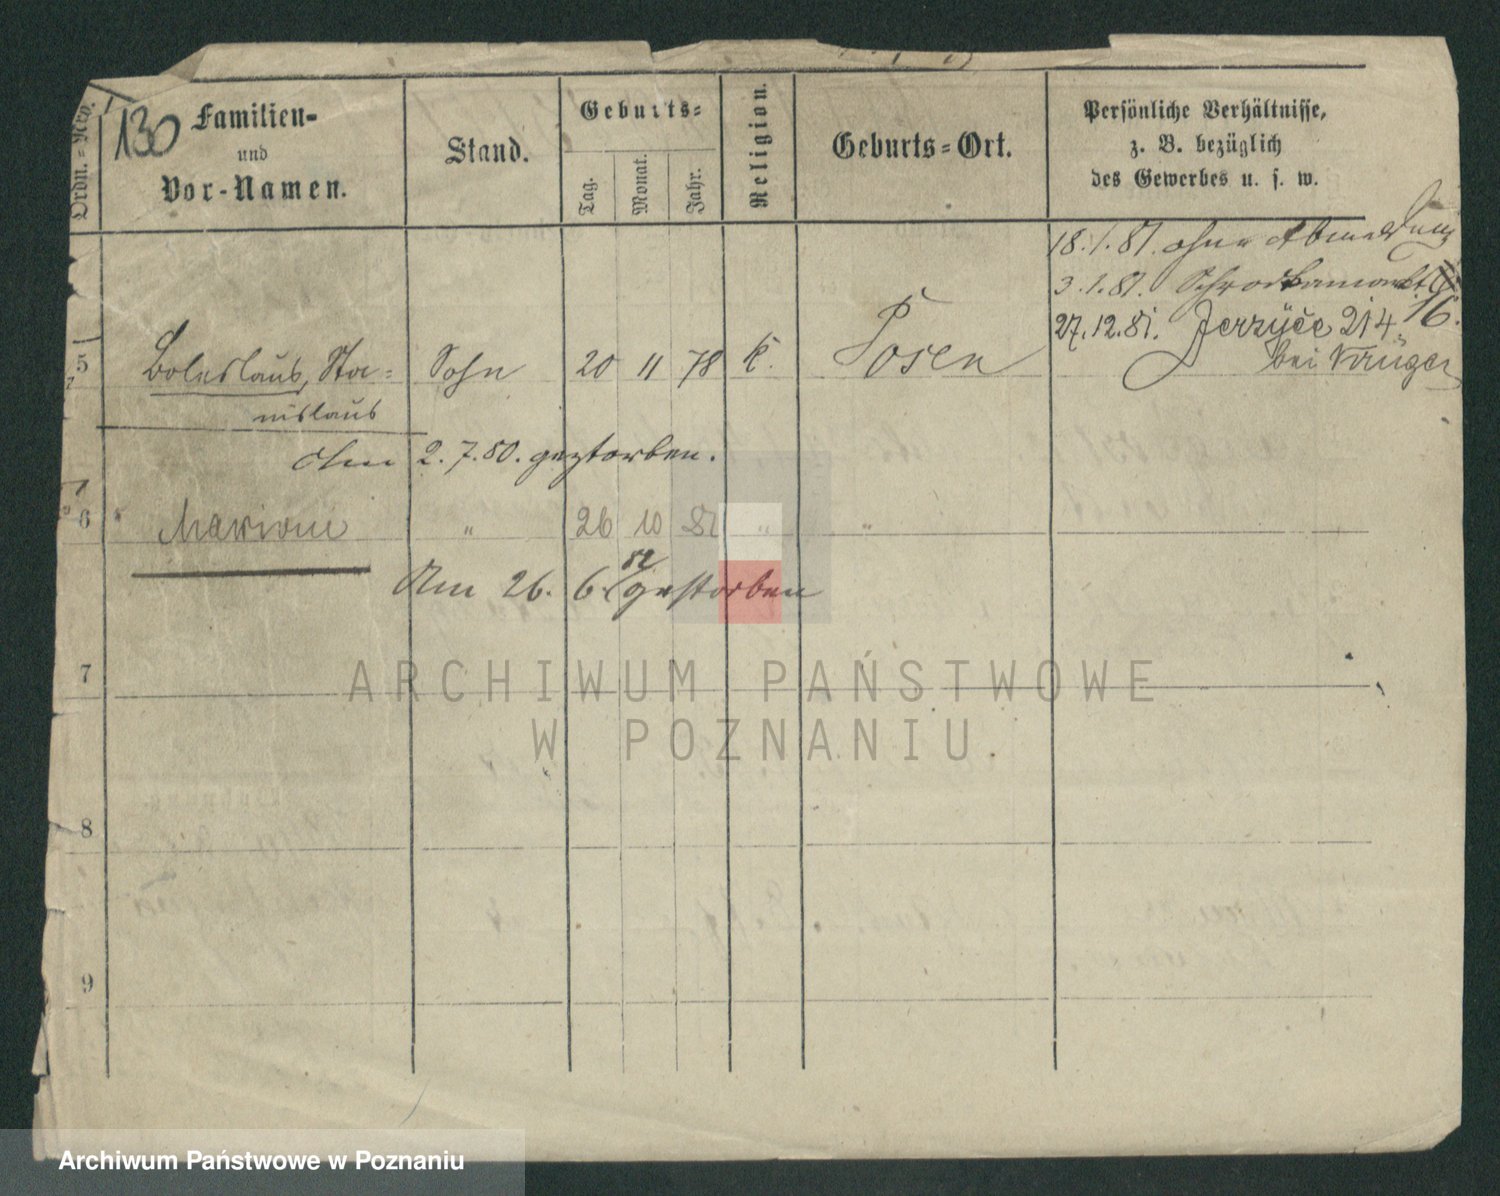 130
Ordn.-Nro.
Familien-
und
Vor-Namen.
Stand.
Geburts-
Tag.
Monat.
Jahr.
Religion.
Geburts-Ort.
Persönliche Verhältnisse,
z. B. bezüglich
des Gewerbes u. s. w.
18.1.81. ohne Abmeldung
3.1.81.
16.
27.12.81. Jerzyce 214
bei Krüger
5 Boleslaus, Sta- Sohn 20 11 78 k. Posen
nislaus
Am 2.7.80. gestorben.
6 " 26 10 81 " "
82
Am 26. 6. gestorben
7
8
9
ARCHIWUM PAŃSTWOWE
W POZNANIU
Archiwum Państwowe w Poznaniu